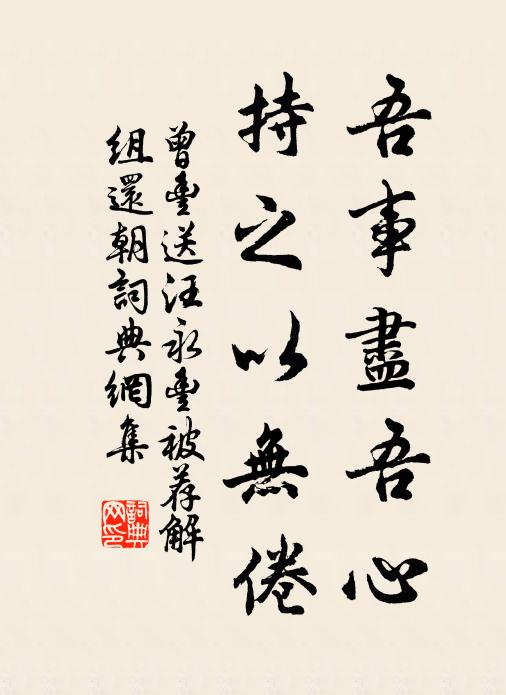 吾事盡吾心
持之以無倦
曾豐送汪永豐被荐解
組還朝詞典網集
詞典
网印